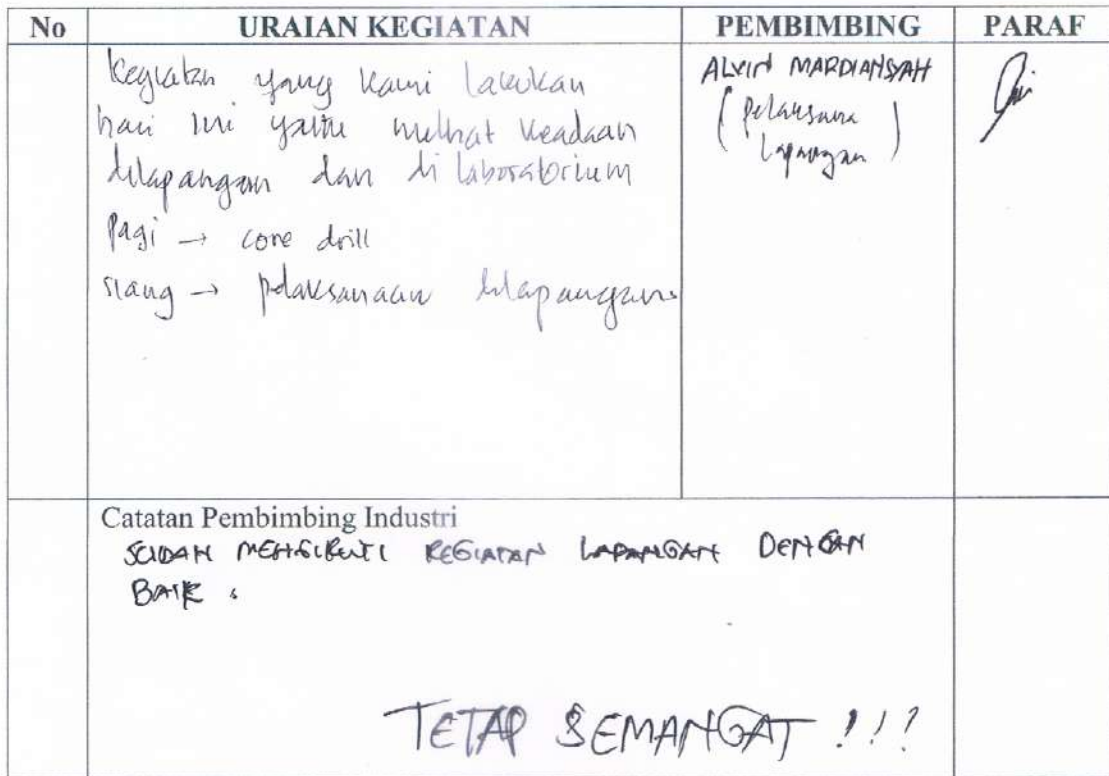 No URAIAN KEGIATAN PEMBIMBING PARAF
Kegiatan yang kami lakukan
hari ini yaitu melihat keadaan
dilapangan dan di laboratorium
Pagi → core drill
siang → pelaksanaan dilapangan.
ALVIN MARDIANSYAH
(Pelaksana
Lapangan)
Catatan Pembimbing Industri
SUDAH MENGIKUTI KEGIATAN LAPANGAN DENGAN
BAIK.
TETAP SEMANGAT !!!